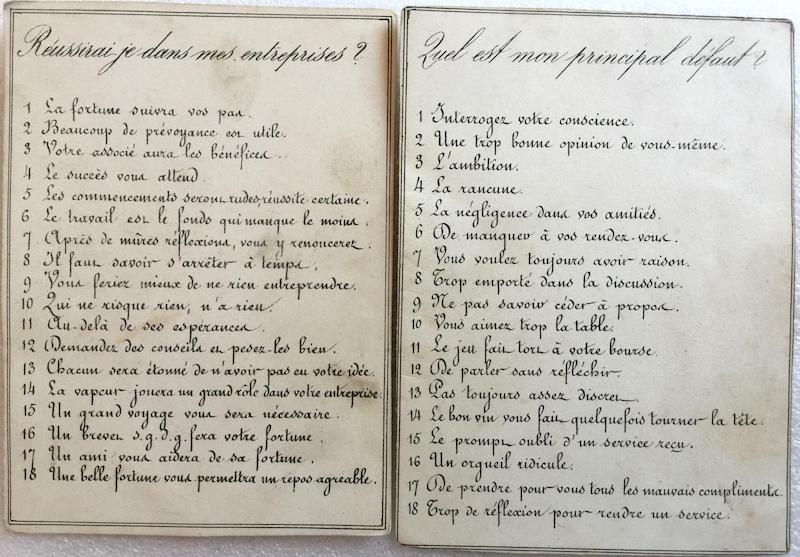 Réussirai-je dans mes entreprises ?
1 La fortune suivra vos pas.
2 Beaucoup de prévoyance est utile.
3 Votre associé aura les bénéfices.
4 Le succès vous attend.
5 Les commencements seront rudes, réussite certaine.
6 Le travail est le fonds qui manque le moins.
7 Après de mûres réflexions, vous y renoncerez.
8 Il faut savoir s'arrêter à temps.
9 Vous feriez mieux de ne rien entreprendre.
10 Qui ne risque rien, n'a rien.
11 Au-delà de ses espérances.
12 Demandez des conseils et pesez-les bien.
13 Chacun sera étonné de n'avoir pas eu votre idée.
14 La vapeur jouera un grand rôle dans votre entreprise.
15 Un grand voyage vous sera nécessaire.
16 Un brevet s.g.d.g. fera votre fortune.
17 Un ami vous aidera de sa fortune.
18 Une belle fortune vous permettra un repos agréable.
Quel est mon principal défaut ?
1 Interrogez votre conscience.
2 Une trop bonne opinion de vous-même.
3 L'ambition.
4 La rancune.
5 La négligence dans vos amitiés.
6 De manquer à vos rendez-vous.
7 Vous voulez toujours avoir raison.
8 Trop emporté dans la discussion.
9 Ne pas savoir céder à propos.
10 Vous aimez trop la table.
11 Le jeu fait tort à votre bourse.
12 De parler sans réfléchir.
13 Pas toujours assez discret.
14 Le bon vin vous fait quelquefois tourner la tête.
15 Le prompt oubli d'un service reçu.
16 Un orgueil ridicule.
17 De prendre pour vous tous les mauvais compliments.
18 Trop de réflexion pour rendre un service.